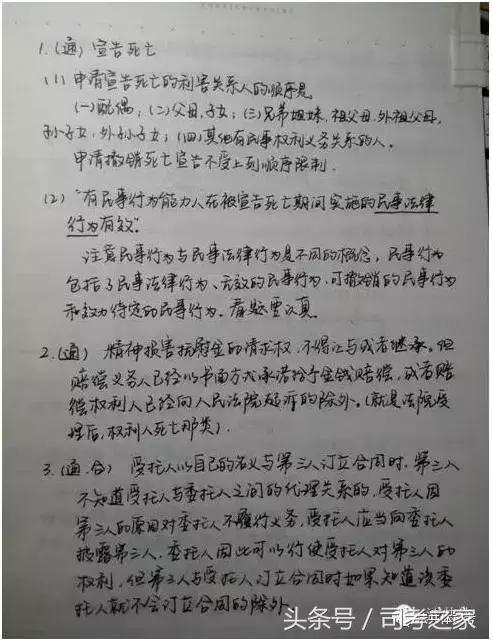 1.(通) 宣告死亡
(1) 申请宣告死亡的利害关系人的顺序是
(一)配偶；(二)父母、子女；(三)兄弟姐妹、祖父母、外祖父母、
孙子女、外孙子女；(四)其他有民事权利义务关系的人。
申请撤销死亡宣告不受上列顺序限制.
(2) “有民事行为能力人在被宣告死亡期间实施的民事法律
行为有效”.
注意民事行为与民事法律行为是不同的概念，民事行为
包括了民事法律行为、无效的民事行为、可撤销的民事行为
和效力待定的民事行为. 看题要认真.
2.(通) 精神损害抚慰金的请求权，不得让与或者继承。但
赔偿义务人已经以书面方式承诺给予金钱赔偿，或者赔
偿权利人已经向人民法院起诉的除外。(就是法院受
理后，权利人死亡那类).
3.(通、合) 受托人以自己的名义与第三人订立合同时，第三人
不知道受托人与委托人之间的代理关系的，受托人因
第三人的原因对委托人不履行义务，受托人应当向委托人
披露第三人，委托人因此可以行使受托人对第三人的
权利，但第三人与受托人订立合同时如果知道该委
托人就不会订立合同的除外.
头条号 / 司考之家